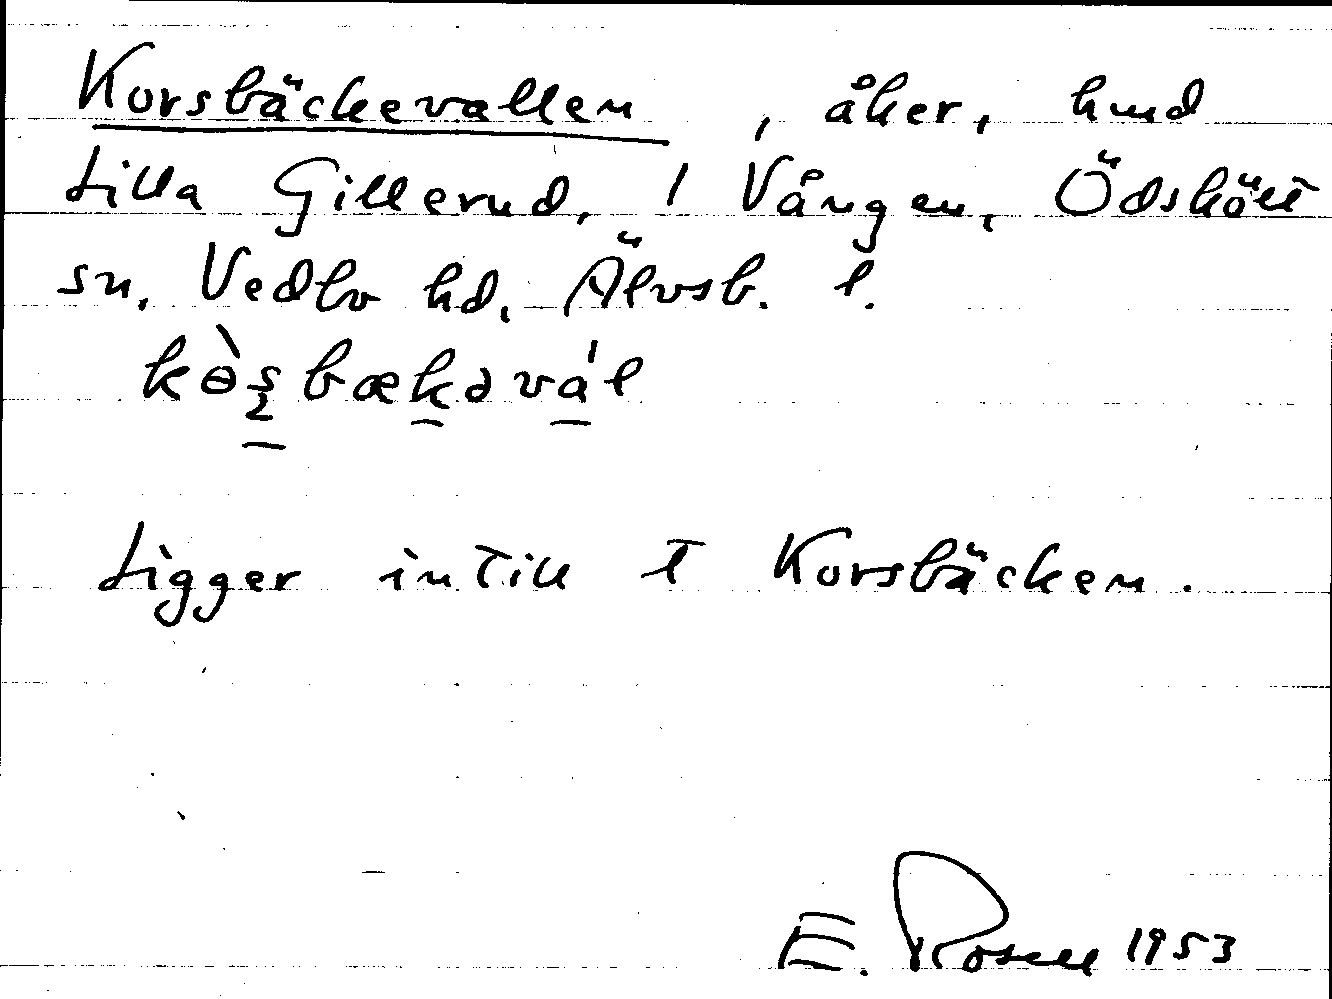 Korsbäckevallen, åker, hmd
Lilla Gillerud, 1 Vången, Ödskölt
sn, Vedbo hd, Älvsb. l.
Ligger intill t Korsbäcken.
E. Rosell 1953